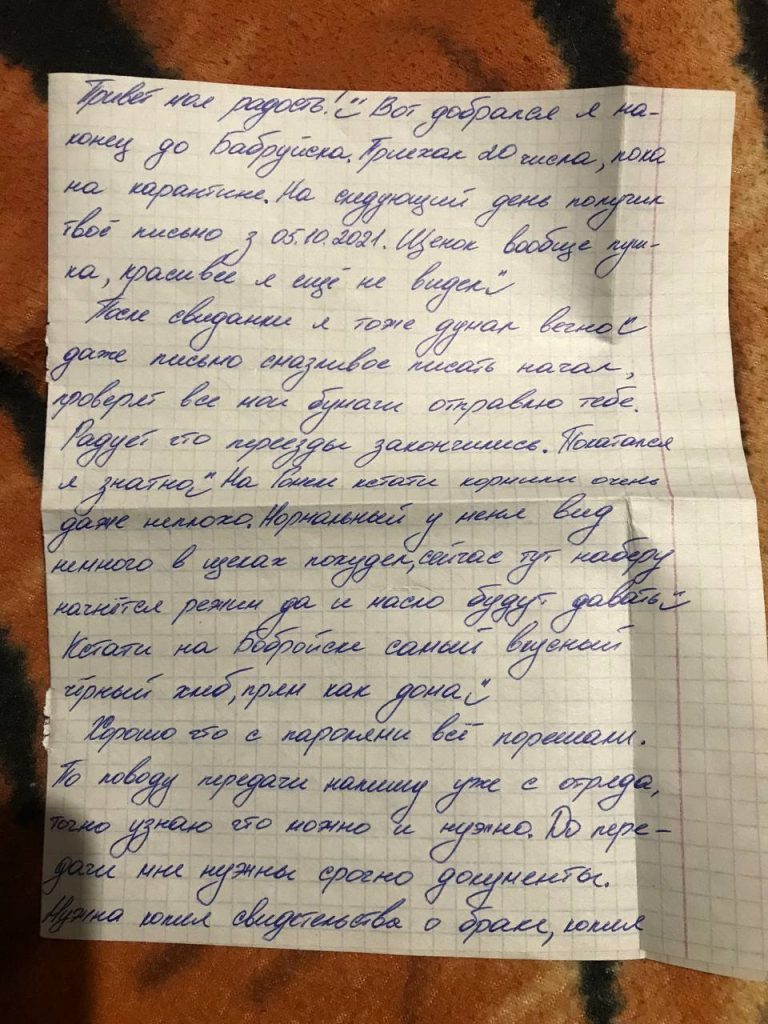 Привет моя радость! Вот добрался я на-
конец до Бабруйска. Приехал 20 числа, пока
на карантине. На следующий день получил
твоё письмо з 05.10.2021. Щенок вообще пуш-
ка, красивее я ещё не видел
После свиданки я тоже думал вечно
даже письмо смазливое писать начал,
проверят все мои бумаги отправлю тебе.
Радует что переезды закончились. Покатался
я знатно На Гомеле кстати кормили очень
даже неплохо. Нормальный у меня вид
немного в щеках похудел, сейчас тут наберу
начнётся режим да и масло будут давать
Кстати на Бобройске самый вкусный
чёрный хлеб, прям как дома
Хорошо что с паролями всё порешали.
По поводу передачи напишу уже с отряда,
точно узнаю что можно и нужно. До пере-
дачи мне нужны срочно документы.
Нужна копия свидетельства о браке, копия